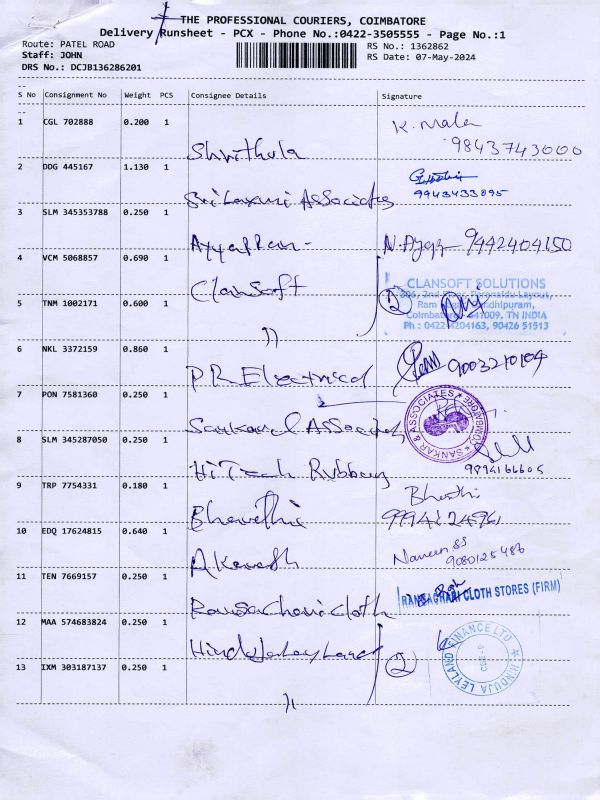 THE PROFESSIONAL COURIERS, COIMBATORE
Delivery Runsheet - PCX - Phone No.:0422-3505555 - Page No.:1
Route: PATEL ROAD
RS No.: 1362862
Staff: JOHN
RS Date: 07-May-2024
DRS No.: DCJB136286201
S No Consignment No Weight PCS Consignee Details Signature
1 CGL 702888 0.200 1 Shrithula K. Mala 9843743000
2 DDG 445167 1.130 1 Sri Laxmi Associates 9943433895
3 SLM 345353788 0.250 1 Ayyappan - N. Ayya 9442404150
4 VCM 5068857 0.690 1 Clansoft
CLANSOFT SOLUTIONS
2nd Floor, Perumaldu Layout,
Ram Nagar, Gandhipuram,
Coimbatore 641009. TN INDIA
Ph : 0422 4204163, 90426 51513
2
5 TNM 1002171 0.600 1 11
6 NKL 3372159 0.860 1 P R Electrical 9003210104
7 PON 7581360 0.250 1 Sankar Associates
SANKAR & ASSOCIATES COIMBATORE
8 SLM 345287050 0.250 1 Hi Tech Rubber 9894166605
9 TRP 7754331 0.180 1 Bharathi Bharthi
10 EDQ 17624815 0.640 1 Akaash Naveen SS 9080125486
11 TEN 7669157 0.250 1 Ramachari cloth
CLOTH STORES (FIRM)
12 MAA 574683824 0.250 1 Hinduja Leyland 2
HINDUJA LEYLAND FINANCE LTD
13 IXM 303187137 0.250 1 11